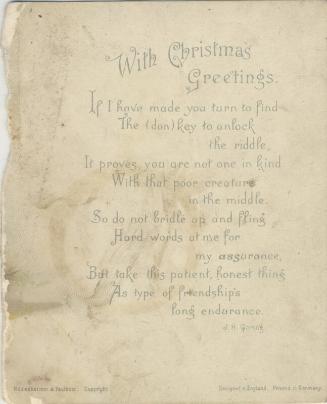 With Christmas
Greetings.
If I have made you turn to find
The (don) key to unlock
the riddle,
It proves, you are not one in kind
With that poor creature
in the middle.
So do not bridle up and fling
Hard words at me for
my assurance,
But take this patient, honest thing
As type of friendship's
long endurance.
Hildesheimer & Faulkner. Copyright
Designed in England. Printed in Germany.